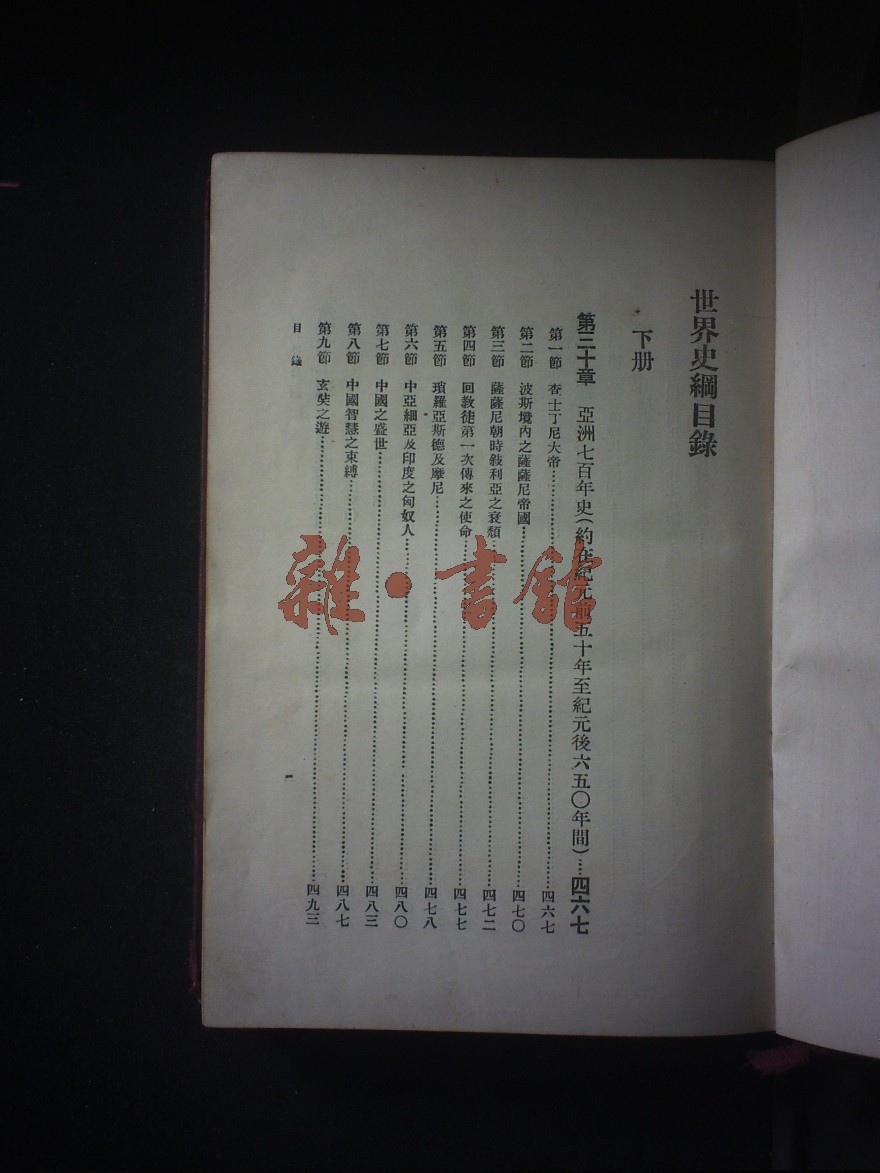 世界史綱目錄
下册
第三十章 亞洲七百年史(約在紀元前五十年至紀元後六五〇年間)……四六七
第一節 查士丁尼大帝……四六七
第二節 波斯境內之薩薩尼帝國……四七〇
第三節 薩薩尼朝時敍利亞之衰頹……四七二
第四節 回教徒第一次傳來之使命……四七七
第五節 瑣羅亞斯德及摩尼……四七八
第六節 中亞細亞及印度之匈奴人……四八〇
第七節 中國之盛世……四八三
第八節 中國智慧之束縛……四八七
第九節 玄奘之遊……四九三
目錄
一
雜·書館